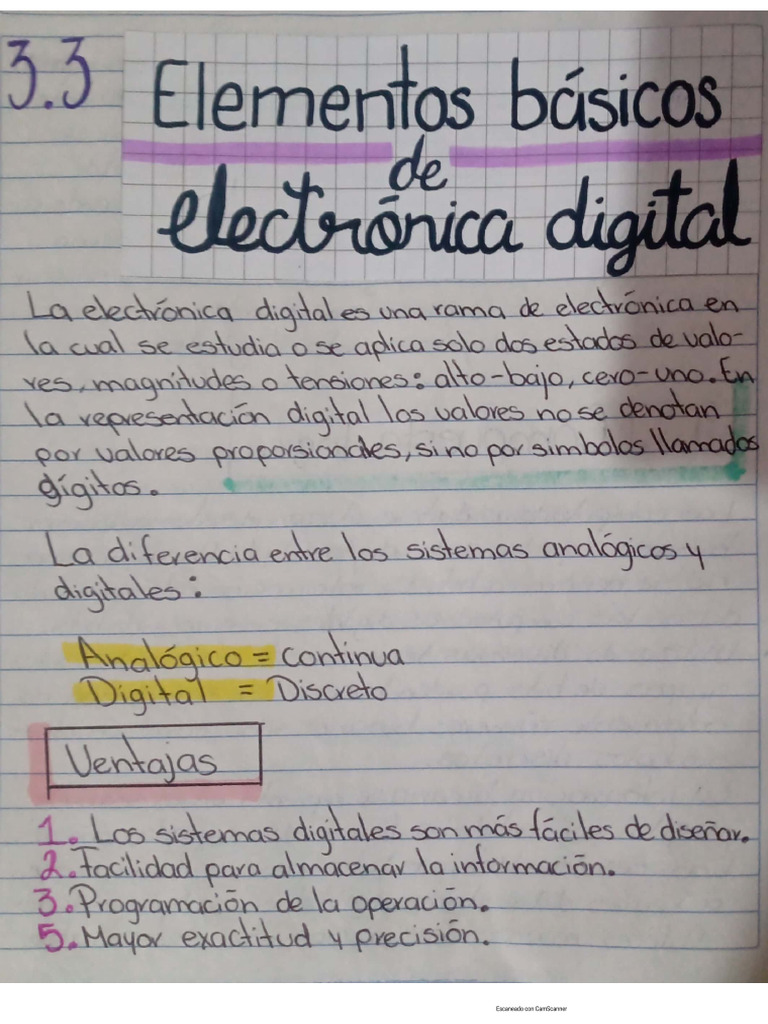 3.3 Elementos básicos
de
electrónica digital
La electrónica digital es una rama de electrónica en
la cual se estudia o se aplica solo dos estados de valo-
res, magnitudes o tensiones: alto-bajo, cero-uno. En
la representación digital los valores no se denotan
por valores proporsionales, si no por simbolos llamados
gígitos.
La diferencia entre los sistemas analógicos y
digitales:
Analógico = continua
Digital = Discreto
Ventajas
1. Los sistemas digitales son más fáciles de diseñar.
2. Facilidad para almacenar la información.
3. Programación de la operación.
5. Mayor exactitud y precisión.
Escaneado con CamScanner